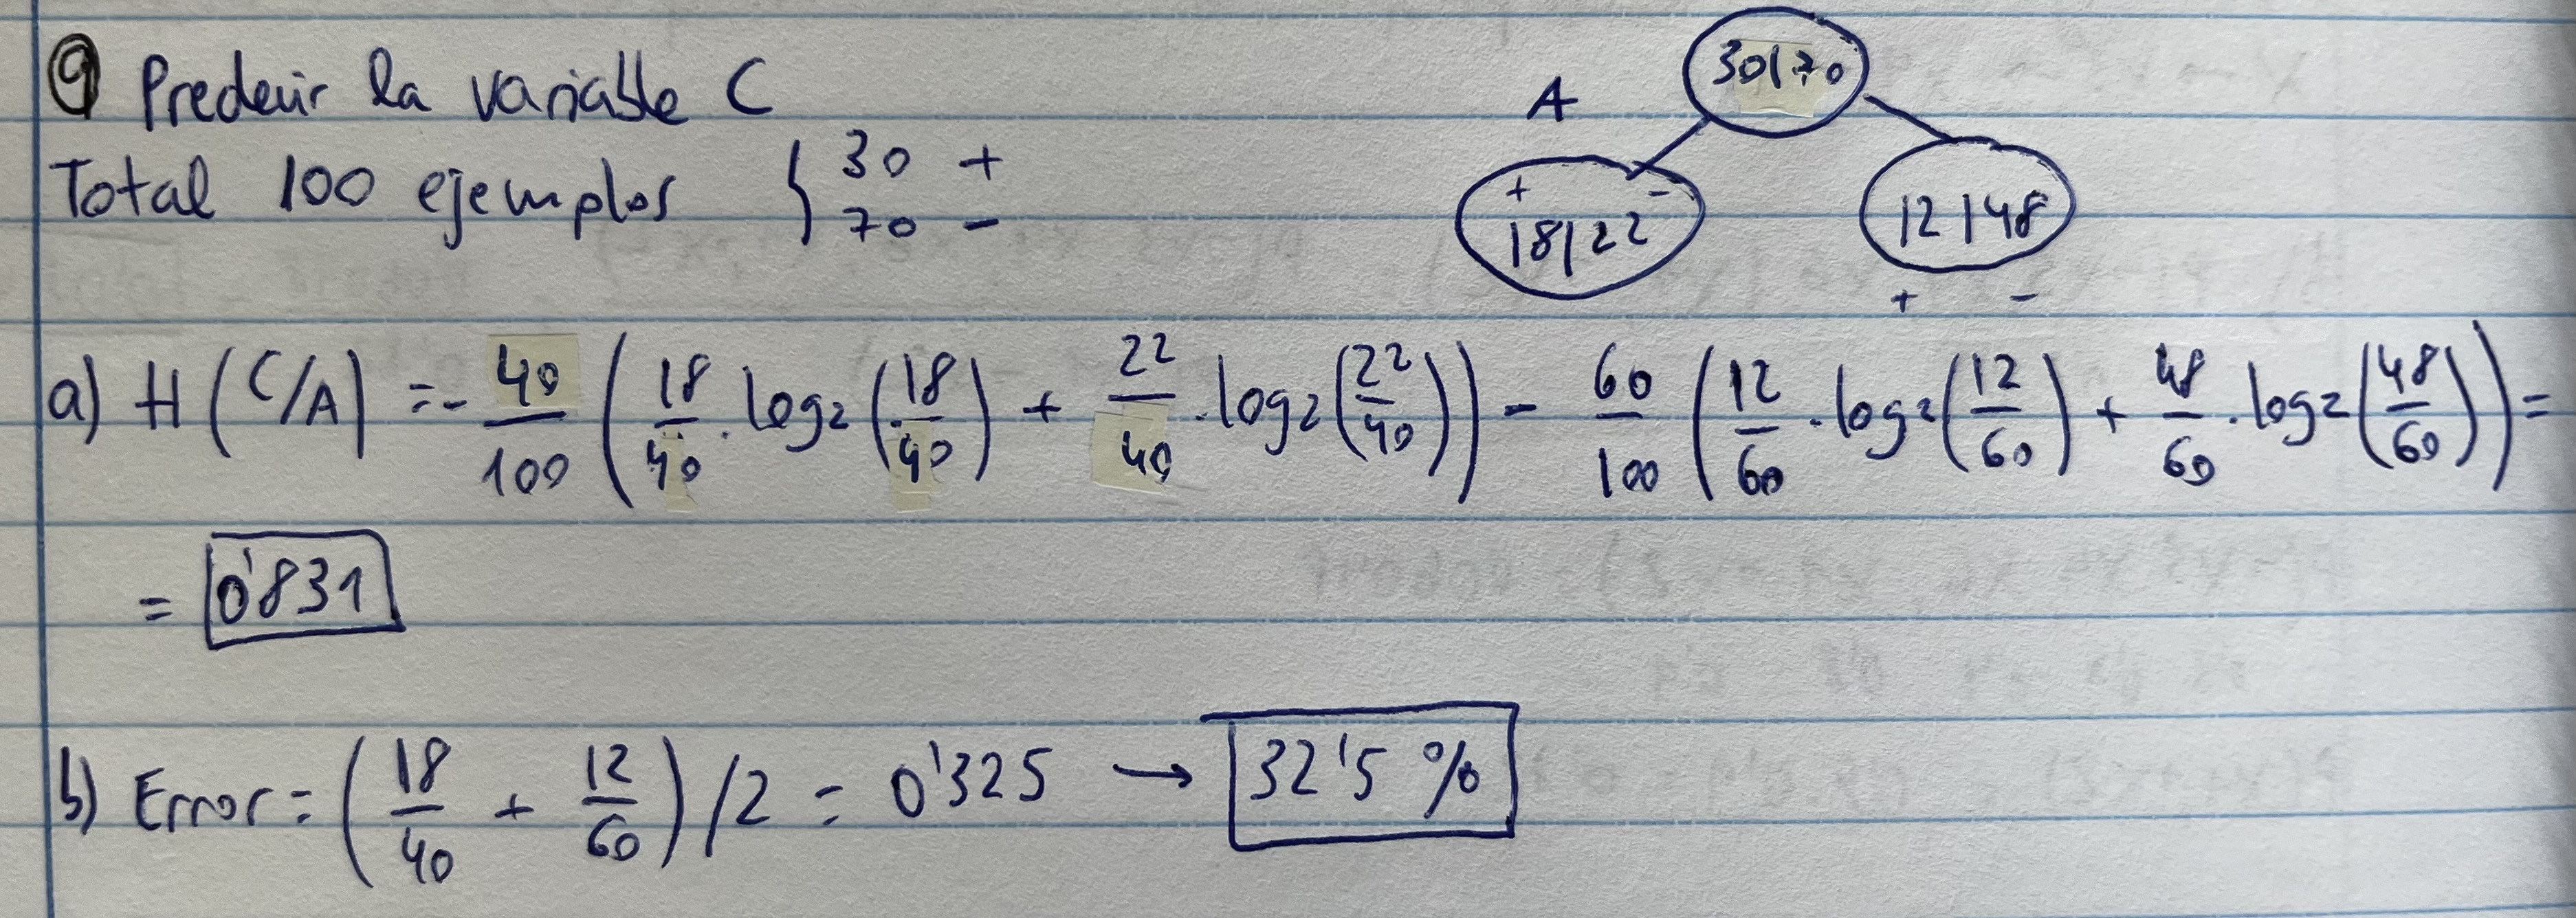 9 Predecir la variable C
Total 100 ejemplos { 30 +
70 -
A
30|70
+ -
18|22
12|48
+ -
a) H(C/A) = - 40/100 (18/40 · log2 (18/40) + 22/40 · log2 (22/40)) - 60/100 (12/60 · log2 (12/60) + 48/60 · log2 (48/60)) =
= 0'831
b) Error = (18/40 + 12/60) /2 = 0'325 → 32'5 %